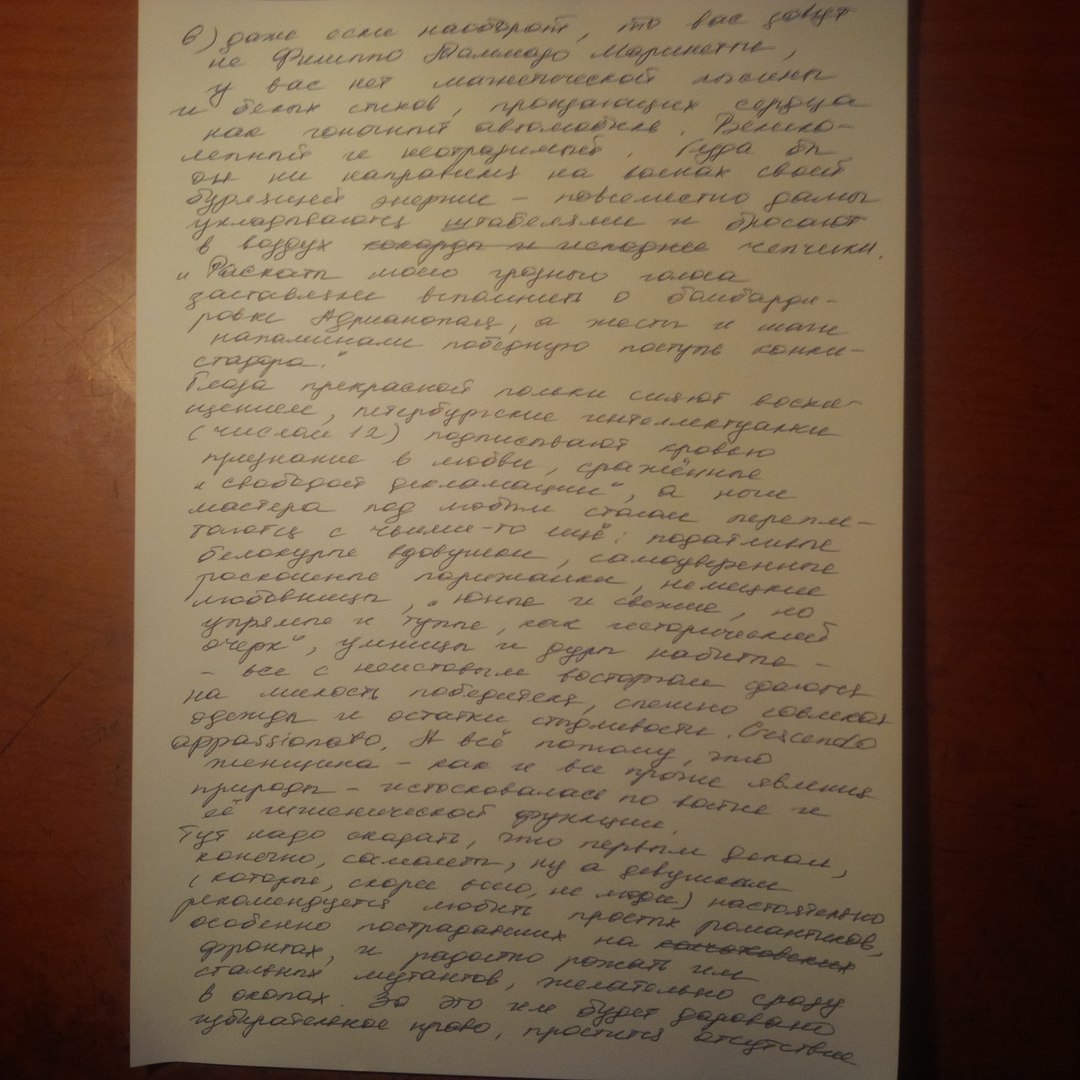 6) даже если наоборот, то вас зовут
не Филиппо Томмазо Маринетти,
у вас нет магнетической лысины
и белых стихов, пронзающих сердца
как гоночный автомобиль. Велико-
лепный и неотразимый. Куда бы
он ни направился на волнах своей
бурлящей энергии – повсеместно дамы
укладываются штабелями и бросают
в воздух кокарды и исподнее чепчики.
„Раскаты моего грозного голоса
заставляли вспомнить о бомбарди-
ровке Адрианополя, а жесты и шаги
напоминали победную поступь конки-
стадора."
Глаза прекрасной польки сияют восхи-
щением, петербургские интеллектуалки
(числом 12) подписывают кровью
признание в любви, сражённые
„свободой декламации", а ноги
мастера под любым столом перепле-
таются с чьими-то ещё: податливые
белокурые вдовушки, самоуверенные
роскошные парижанки, немецкие
любовницы, „юные и свежие, но
упрямые и тупые, как исторический
очерк", умницы и дуры набитые –
– все с неистовым восторгом сдаются
на милость победителя, спешно совлекая
одежды и остатки стыдливости. Crescendo
appassionato. А всё потому, что
женщина – как и все прочие явления
природы – истосковалась по войне и
её гигиенической функции.
Тут надо сказать, что первым делом,
конечно, самолёты, ну а девушкам
(которые, скорее всего, не люди) настоятельно
рекомендуется любить простых романтиков,
особенно пострадавших на
фронтах, и радостно рожать им
стальных мутантов, желательно сразу
в окопах. За это им будет даровано
избирательное право, простится отсутствие